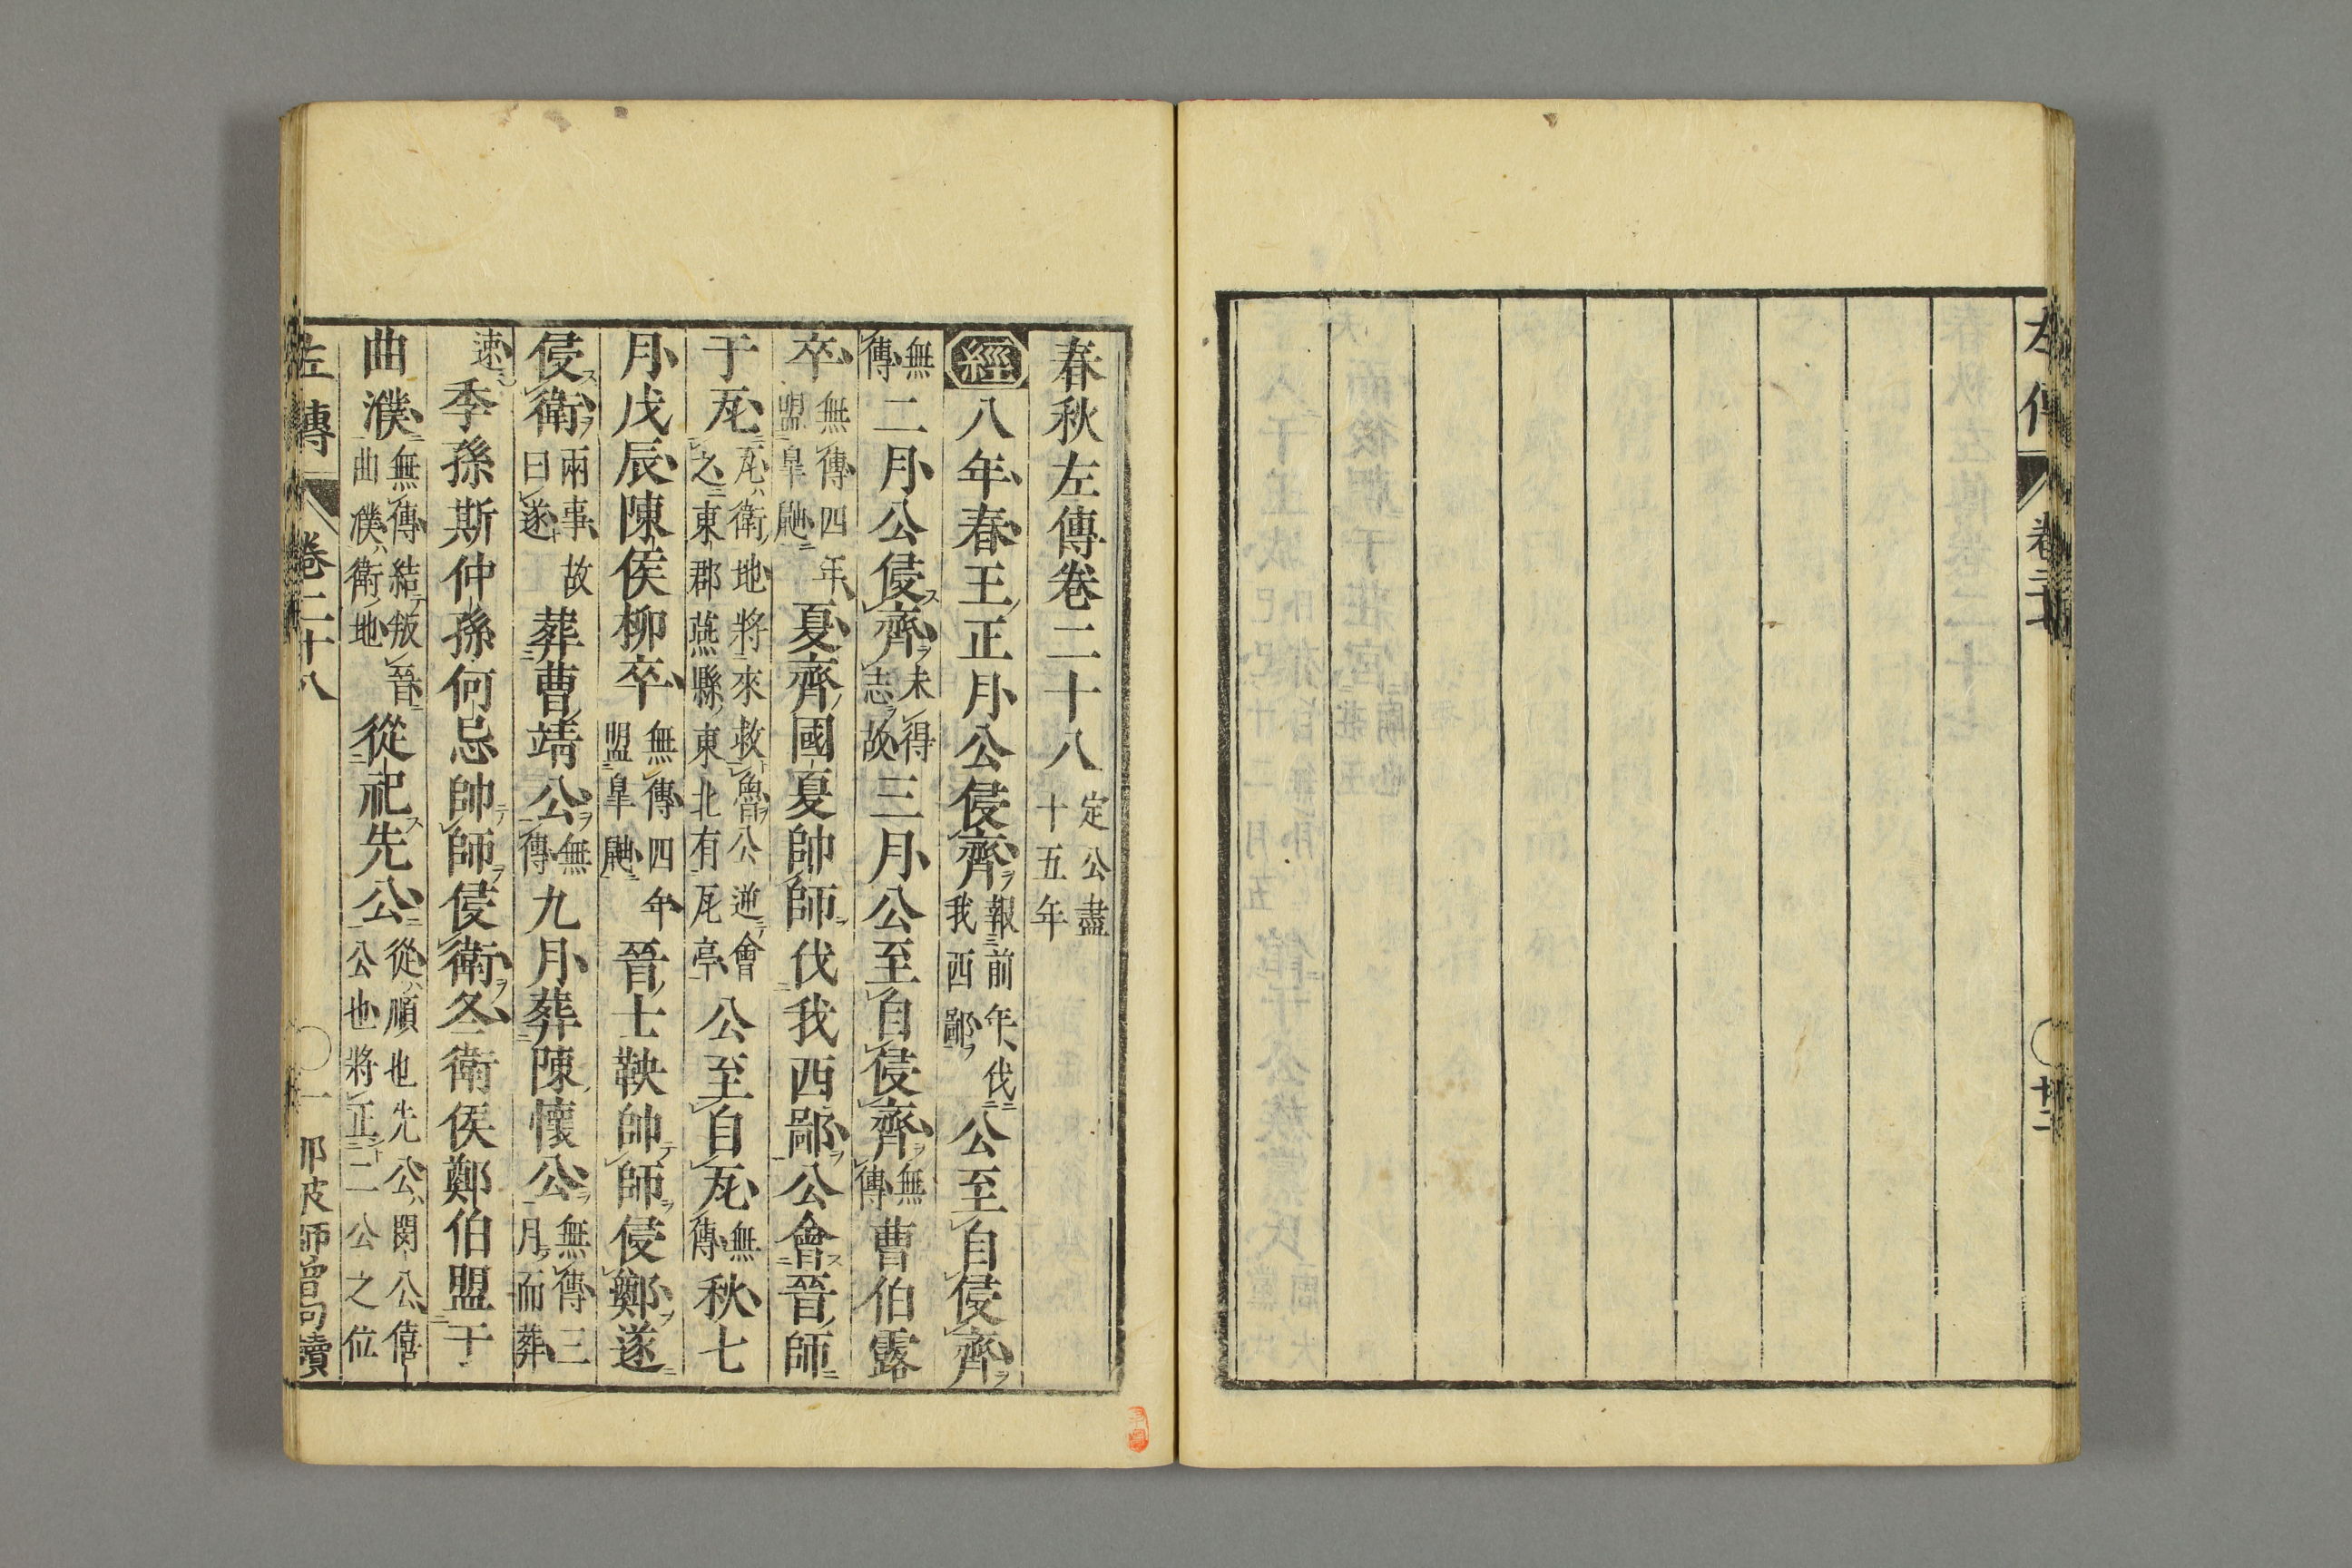 春秋左傳卷二十八 定公盡十五年
經八年春王正月公侵齊 報前年伐我西鄙 公至自侵齊
無傳 二月公侵齊 未得志故 三月公至自侵齊 無傳 曹伯露
卒 無傳四年盟皐鼬 夏齊國夏帥師伐我西鄙公會晉師
于瓦 瓦衛地將來救魯公逆會之東郡燕縣東北有瓦亭 公至自瓦 無傳 秋七
月戊辰陳侯柳卒 無傳四年盟皐鼬 晉士鞅帥師侵鄭遂
侵衛 兩事故曰遂 葬曹靖公 無傳 九月葬陳懷公 無傳三月而葬
速 季孫斯仲孫何忌帥師侵衛冬衛侯鄭伯盟于
曲濮 無傳結叛晉曲濮衛地 從祀先公 從順也先公閔公僖公也將正二公之位
左傳 卷二十八 〇一 那波師曾句讀